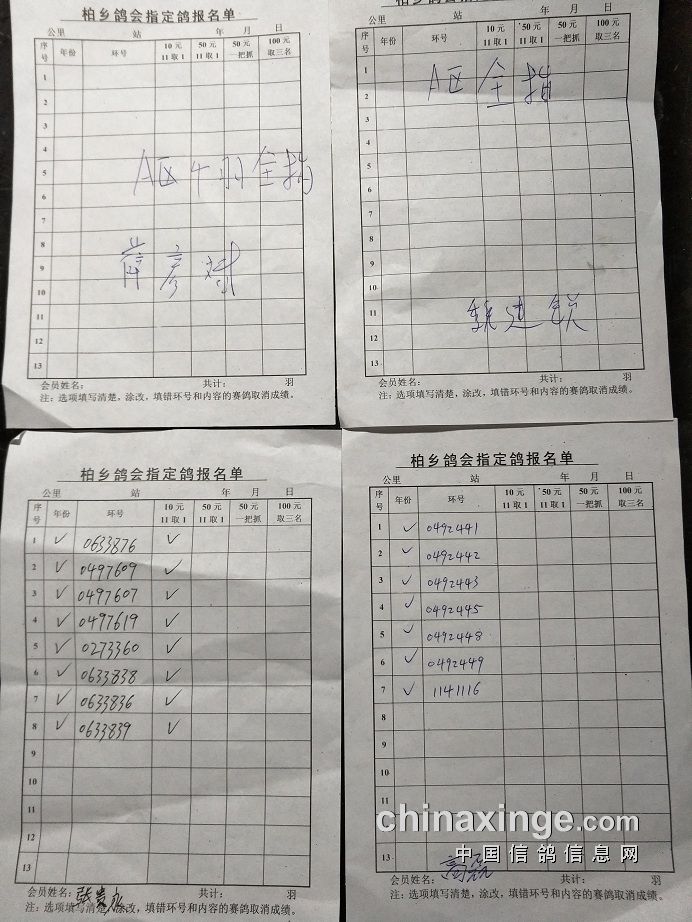 柏乡鸽会指定鸽报名单
公里 站 年 月 日
序号 年份 环号 10元 11取1 50元 11取1 50元 一把抓 100元 取三名
1
2
3
4
5
A区 全指
6
7
8
薛彦斌
9
10
11
12
13
会员姓名： 共计： 羽
注：选项填写清楚，涂改，填错环号和内容的赛鸽取消成绩。
公里 站 年 月 日
序号 年份 环号 10元 11取1 50元 11取1 50元 一把抓 100元 取三名
1
A区 全指
2
3
4
5
6
7
8
9
10
11
建锁
12
13
会员姓名： 共计： 羽
注：选项填写清楚，涂改，填错环号和内容的赛鸽取消成绩。
柏乡鸽会指定鸽报名单
公里 站 年 月 日
序号 年份 环号 10元 11取1 50元 11取1 50元 一把抓 100元 取三名
1 ✓ 0633876 ✓
2 ✓ 0497609 ✓
3 ✓ 0497607 ✓
4 ✓ 0497619 ✓
5 ✓ 0273360 ✓
6 ✓ 0633838 ✓
7 ✓ 0633836 ✓
8 ✓ 0633839 ✓
9
10
11
12
13
会员姓名：张贵永 共计： 羽
注：选项填写清楚，涂改，填错环号和内容的赛鸽取消成绩。
柏乡鸽会指定鸽报名单
公里 站 年 月 日
序号 年份 环号 10元 11取1 50元 11取1 50元 一把抓 100元 取三名
1 ✓ 0492441
2 ✓ 0492442
3 ✓ 0492443
4 ✓ 0492445
5 ✓ 0492448
6 ✓ 0492449
7 ✓ 1141116
8
9
10
11
12
13
会员姓名： 共计： 羽
注：选项填写清楚，涂改，填错环号和内容的赛鸽取消成绩。
chinaxinge.com
中国信鸽信息网